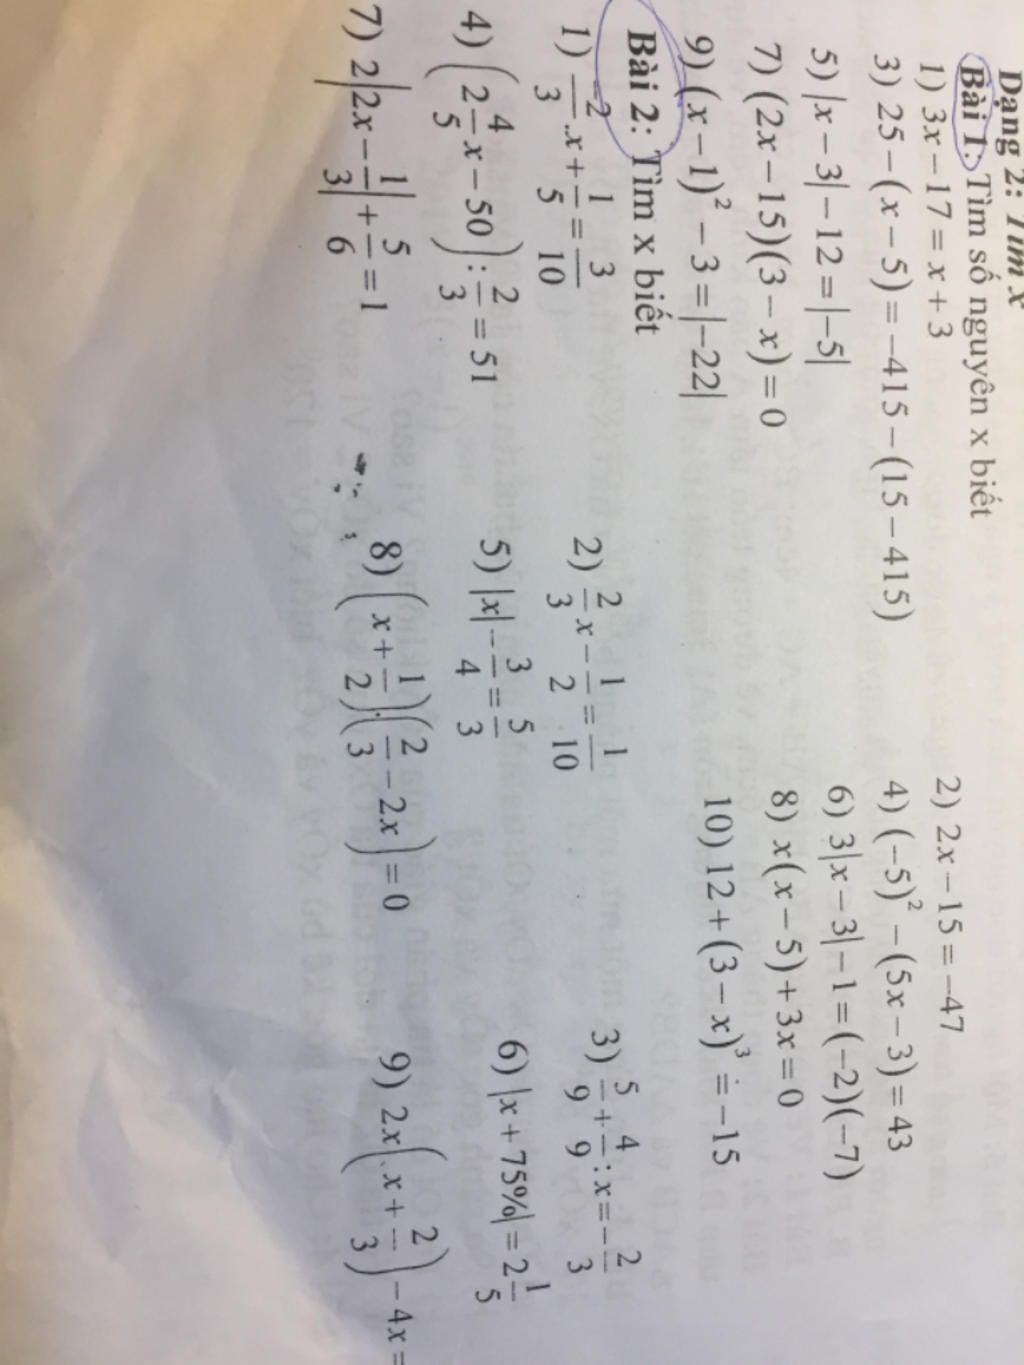 Dạng 2: Tìm x
Bài 1: Tìm số nguyên x biết
1) 3x − 17 = x + 3
2) 2x − 15 = −47
3) 25 − (x − 5) = −415 − (15 − 415)
4) (−5)² − (5x − 3) = 43
5) |x − 3| − 12 = |−5|
6) 3|x − 3| − 1 = (−2)(−7)
7) (2x − 15)(3 − x) = 0
8) x(x − 5) + 3x = 0
9) (x − 1)² − 3 = |−22|
10) 12 + (3 − x)³ = −15
Bài 2: Tìm x biết
1) −2/3 .x + 1/5 = 3/10
2) 2/3 x − 1/2 = 1/10
3) 5/9 + 4/9 : x = −2/3
4) (2 4/5 x − 50) : 2/3 = 51
5) |x| − 3/4 = 5/3
6) |x + 75%| = 2 1/5
7) 2|2x − 1/3| + 5/6 = 1
8) (x + 1/2).(2/3 − 2x) = 0
9) 2x(x + 2/3) − 4x =